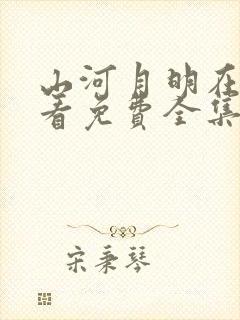 山河月明在
着免费全集
宋秉琴